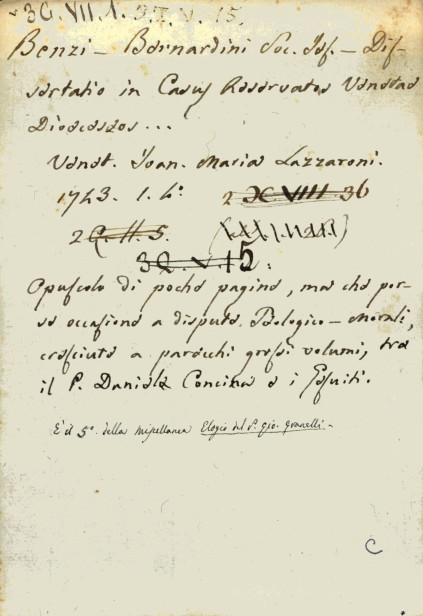 3Q. VII. 1. 3I. V. 15.
Benzi – Bernardini Soc. Jes. – Dis-
sertatio in Casus Reservatos Venetae
Dioeceseos ...
Venet. Joan. Maria Lazzaroni.
1743. 1. 4°. 2 X. VIII. 36
2 Q. II. 5.
3Q. V. 15.
Opuscolo di poche pagine, ma che por-
se occasione a dispute Teologico – Morali,
cresciute a parecchi grossi volumi, tra
il P. Daniele Concina e i Gesuiti.
È il 5°. della miscellanea Elogio del P. Gio. Granelli. –
C